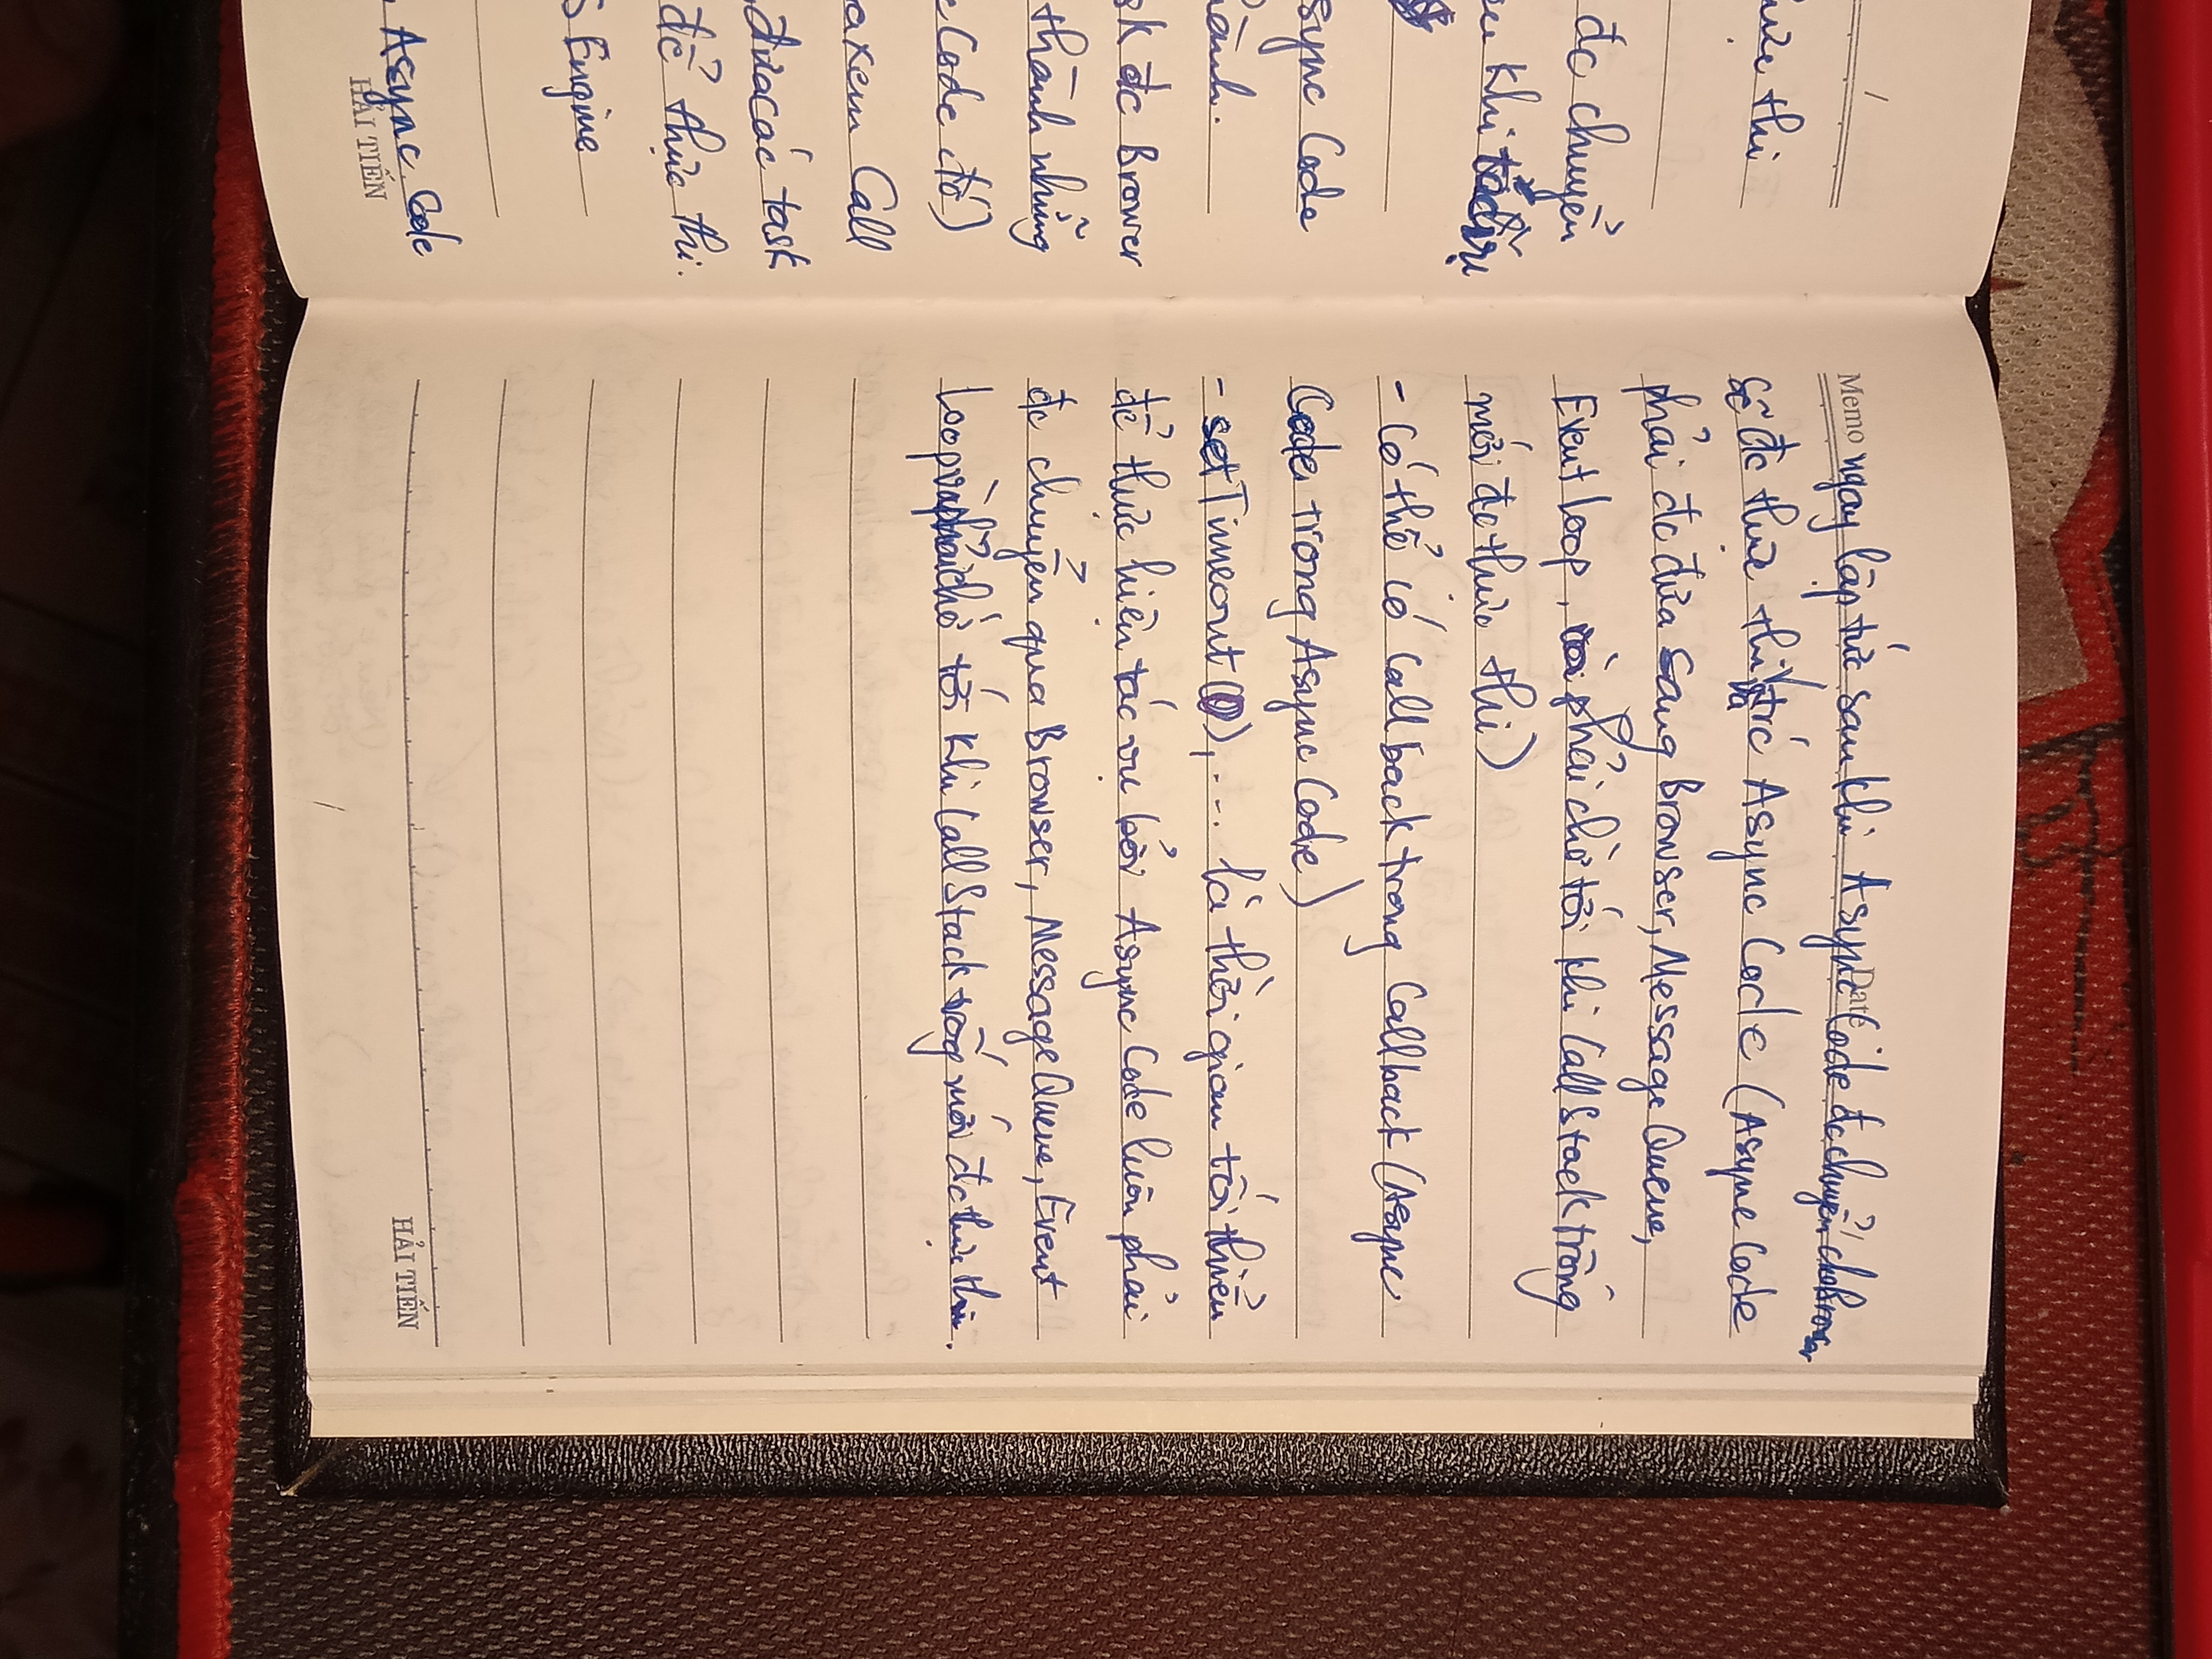 thi
đc chuyển
khi
Async Code
đc Brower
thành những
Code đó)
xem Call
đưa các task
để thực thi.
JS Engine
Async Code
HẢI TIẾN
Memo ngay lập tức sau khi Async Code đc chuyển cho Browser
Date
sẽ đc thực thi và trc Async Code (Async Code
phải đc đưa sang Browser, Message Queue,
Event loop, phải chờ tới khi Call Stack trống
mới đc thực thi)
- Có thể có Callback trong Callback (Async
Code trong Async Code)
- setTimeout(0), ... là thời gian tối thiểu
để thực hiện tác vụ bởi Async Code luôn phải
đc chuyển qua Browser, Message Queue, Event
Loop và phải chờ tới khi Call Stack mới đc thực thi.
HẢI TIẾN